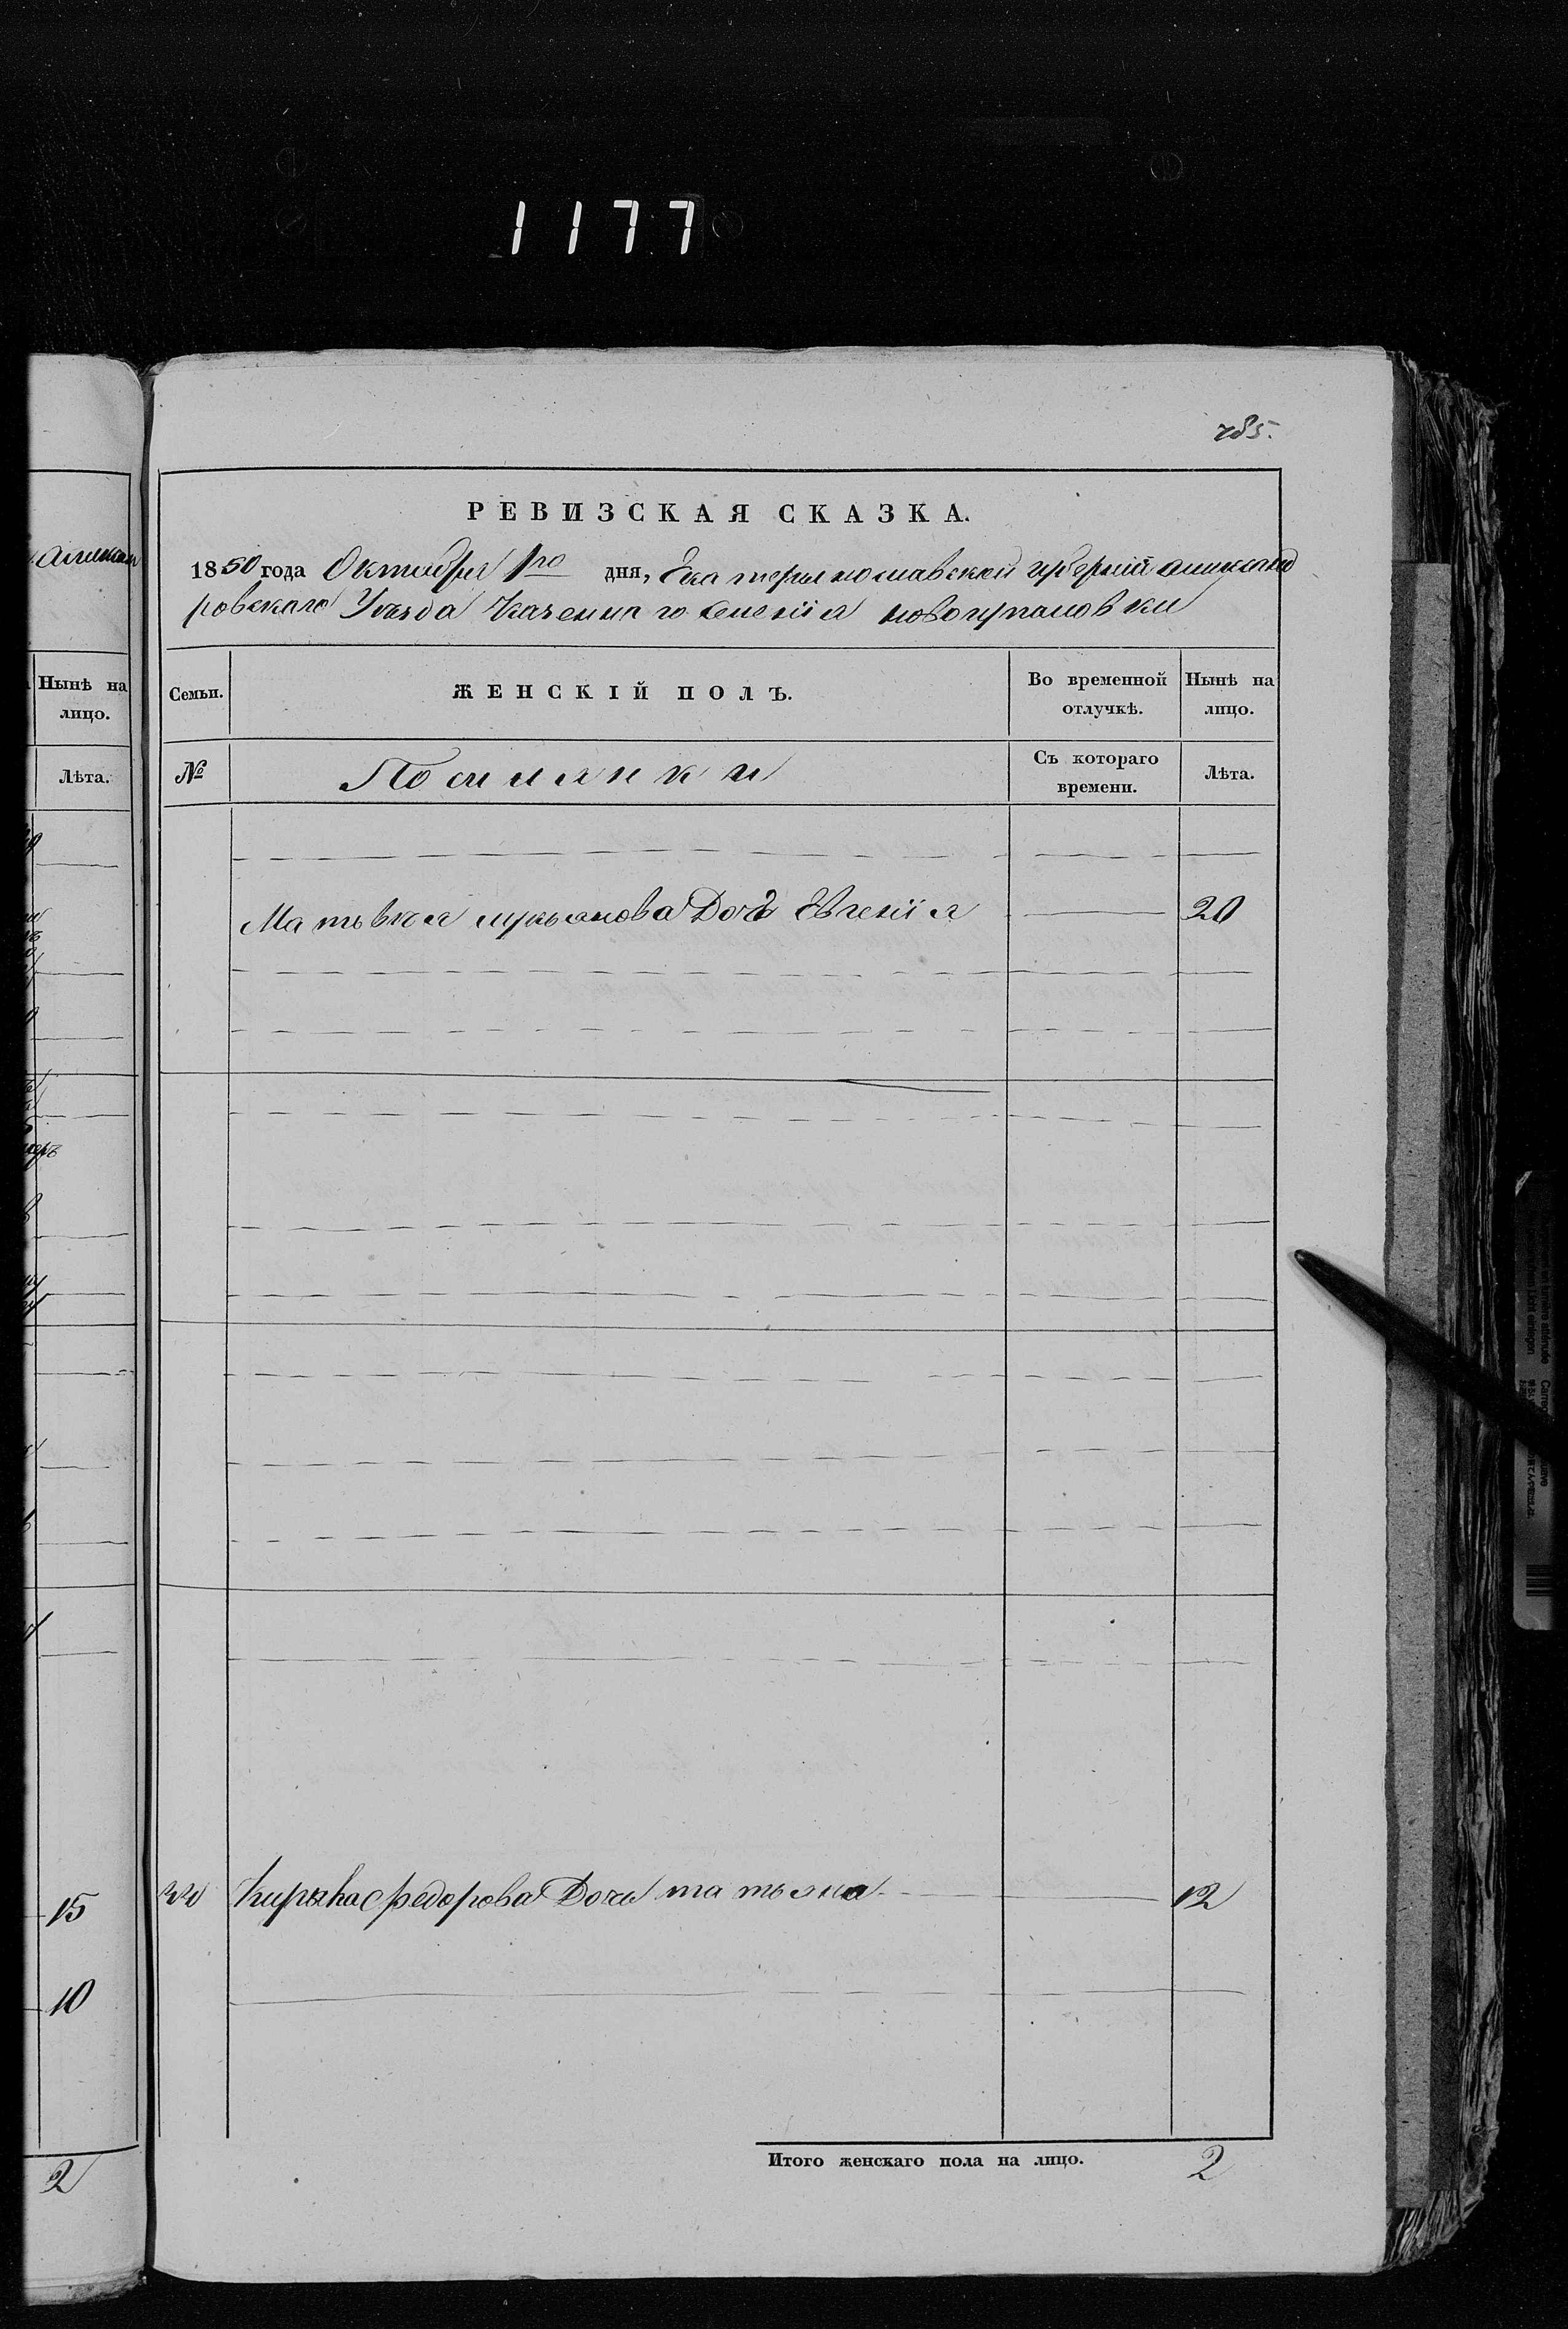 1177
785.
РЕВИЗСКАЯ СКАЗКА.
1850 года Октября 1го дня, Екатеринославской губерніи аликсанд
ровскаго Уѣзда Казеннаго селенія новогупаловки
Семьи. ЖЕНСКІЙ ПОЛЪ. Во временной отлучкѣ. Нынѣ на лицо.
№ Посилянки Съ котораго времени. Лѣта.
Матвѣя лукьянова Дочь Евгенія 20
Федорова Дочь татьяна 12
Итого женскаго пола на лицо. 2
Нынѣ на
лицо.
Лѣта.
15
10
2